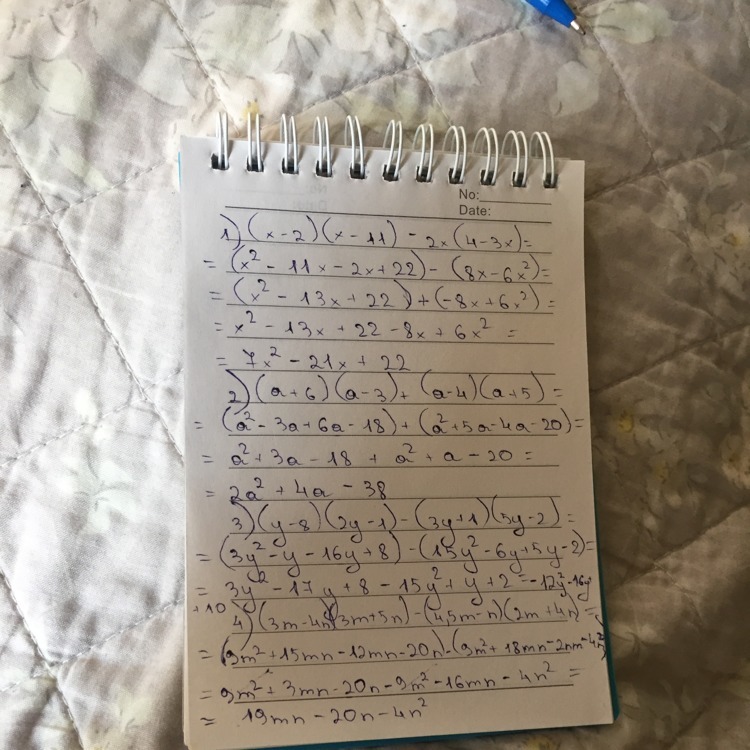 No:
Date:
1) (x-2)(x-11) - 2x(4-3x)=
= (x² - 11x - 2x + 22) - (8x - 6x²)=
= (x² - 13x + 22) + (-8x + 6x²) =
= x² - 13x + 22 - 8x + 6x² =
= 7x² - 21x + 22
2) (a+6)(a-3) + (a-4)(a+5) =
= (a² - 3a + 6a - 18) + (a² + 5a - 4a - 20)=
= a² + 3a - 18 + a² + a - 20 =
= 2a² + 4a - 38
3) (y-8)(2y-1) - (3y+1)(5y-2) =
= (3y² - y - 16y + 8) - (15y² - 6y + 5y - 2)=
= 3y² - 17y + 8 - 15y² + y + 2 = -12y² - 16y
+10
4) (3m-4n)(3m+5n) - (4,5m-n)(2m+4n) =
= (9m² + 15mn - 12mn - 20n) - (9m² + 18mn - 2nm - 4n²)
= 9m² + 3mn - 20n - 9m² - 16mn - 4n² =
= 19mn - 20n - 4n²